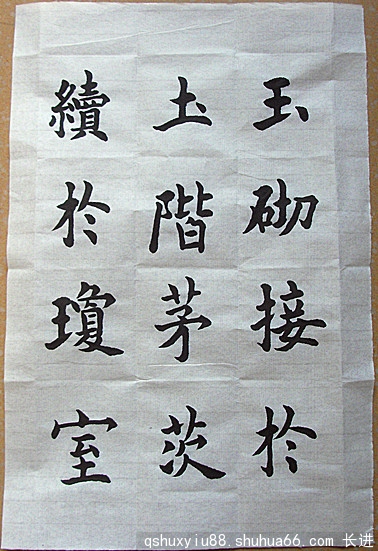 玉砌接於
土階茅茨
續於瓊室
qshuxyiu88.shuhua66.com 长进